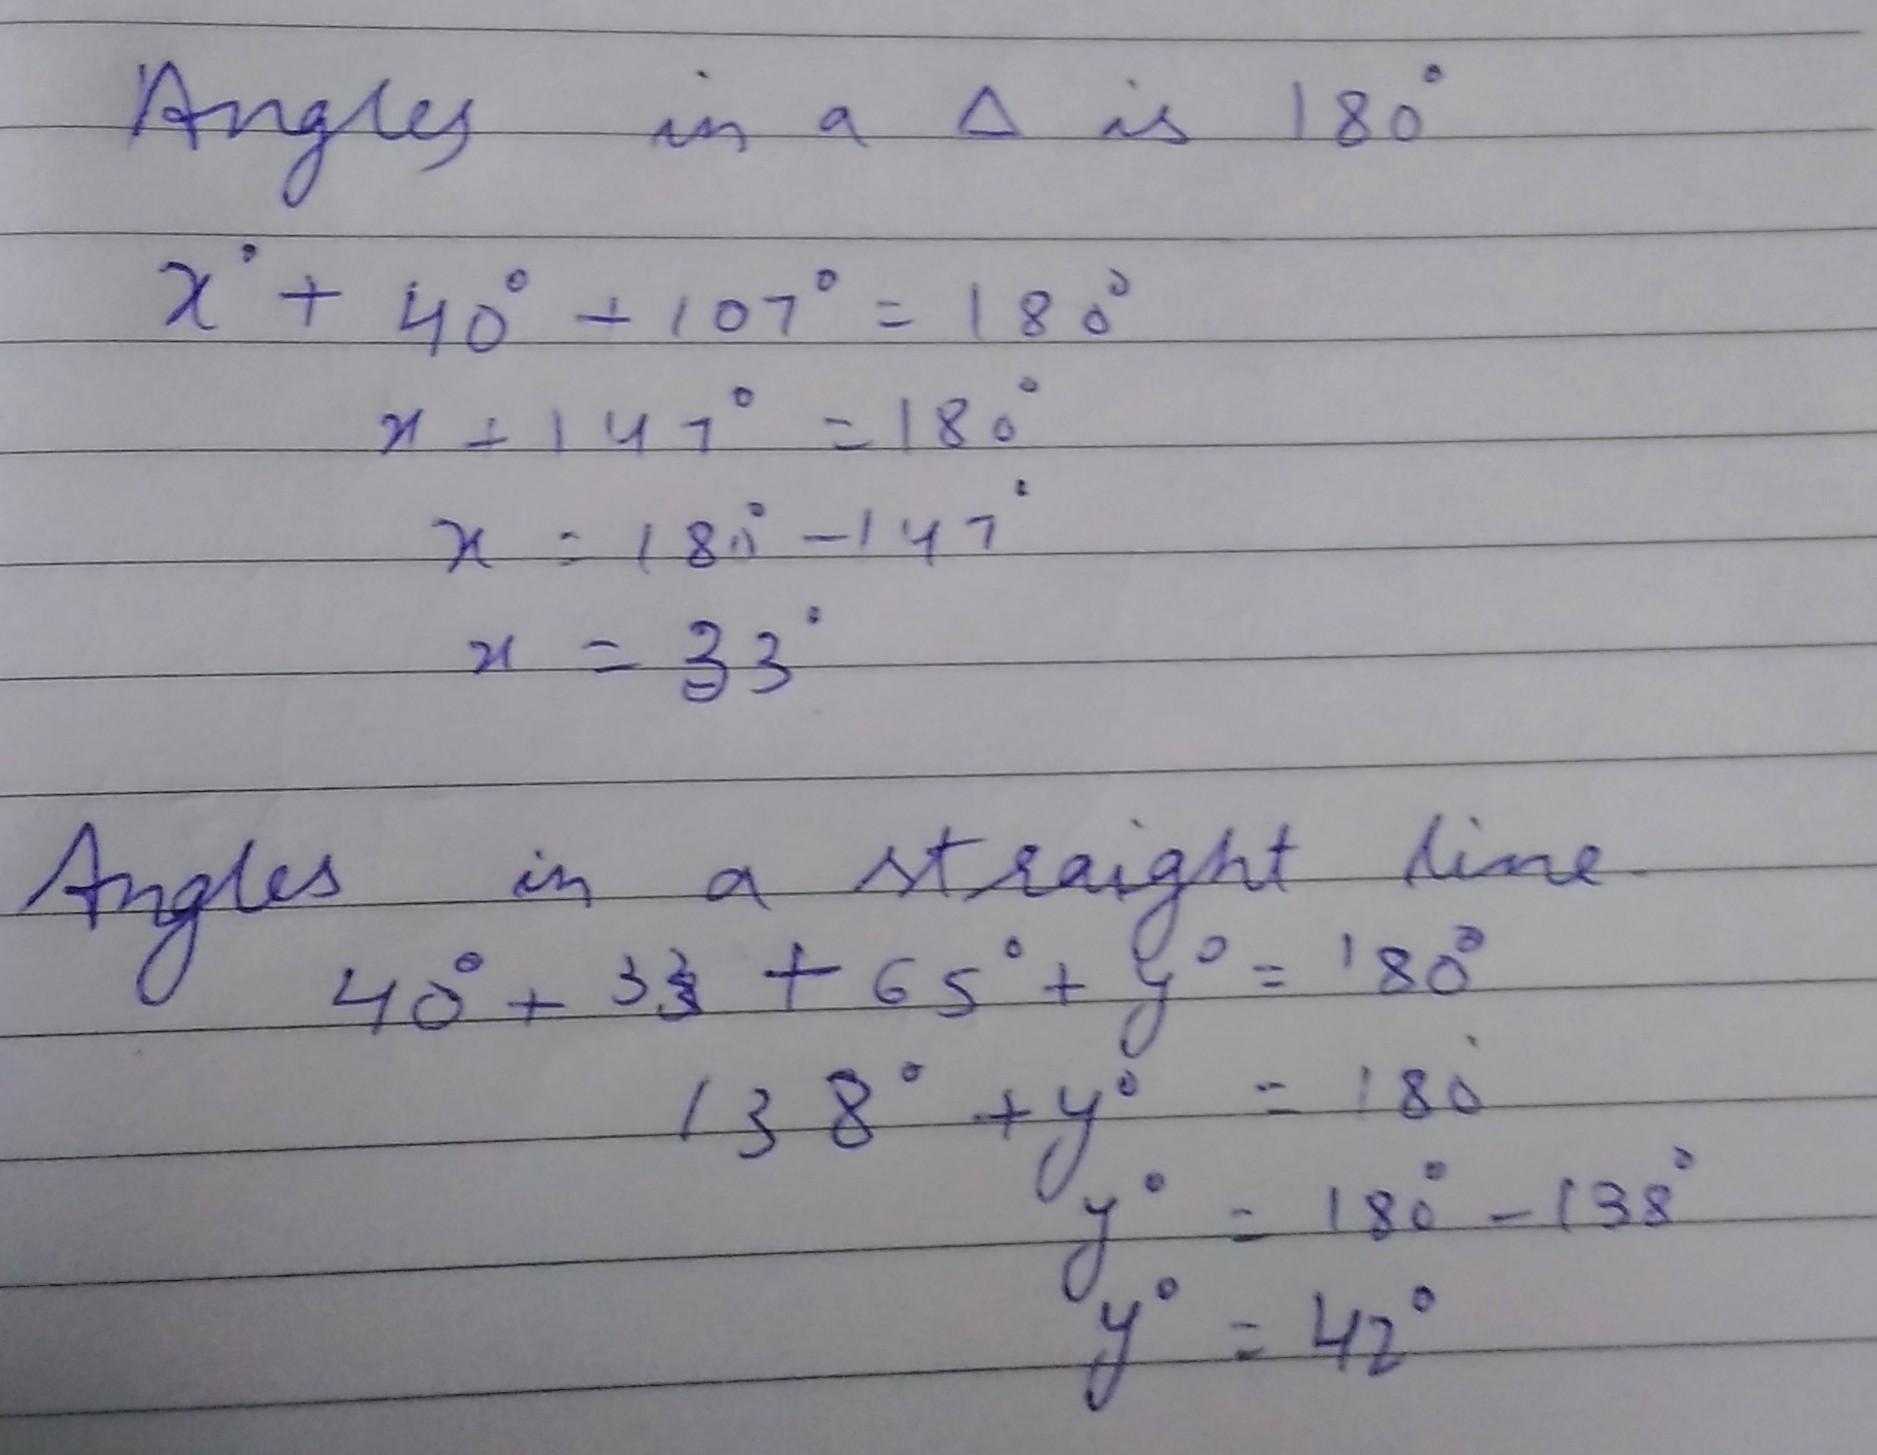 Angles in a Δ is 180°
x° + 40° + 107° = 180°
x + 147° = 180°
x = 180° - 147°
x = 33°
Angles in a straight line
40° + 33 + 65° + y° = 180°
138° + y° = 180°
y° = 180° - 138°
y° = 42°